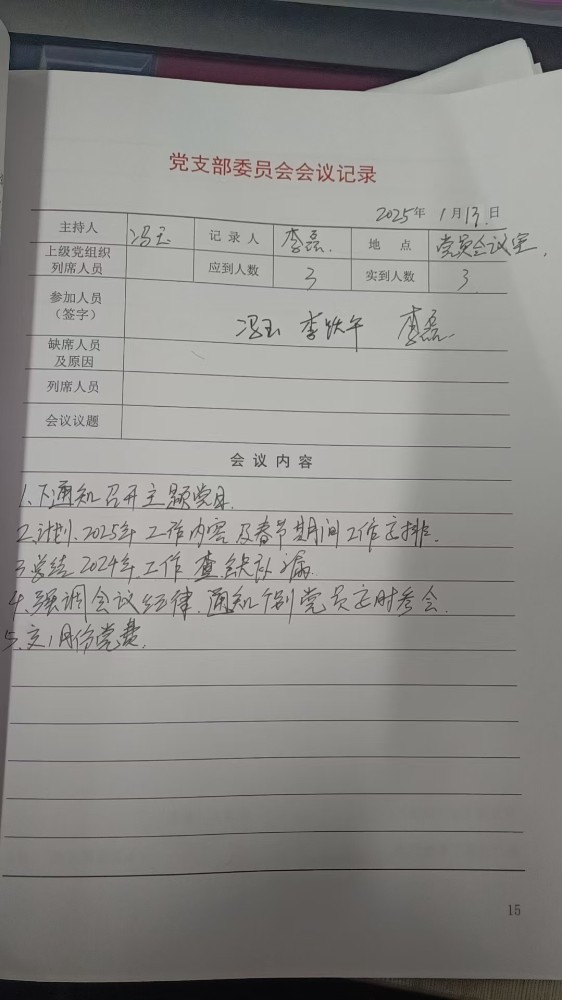 党支部委员会会议记录
2025年 1月13日
主持人 冯玉 记录人 李磊 地点 党员会议室
上级党组织列席人员 应到人数 3 实到人数 3
参加人员
（签字）
冯玉 李 李磊
缺席人员
及原因
列席人员
会议议题
会议内容
1.下通知召开主题党日.
2.计划.2025年工作内容及春节期间工作安排.
3.总结2024年工作查缺补漏.
4.强调会议纪律.通知个别党员定时参会.
5.交1月份党费.
15